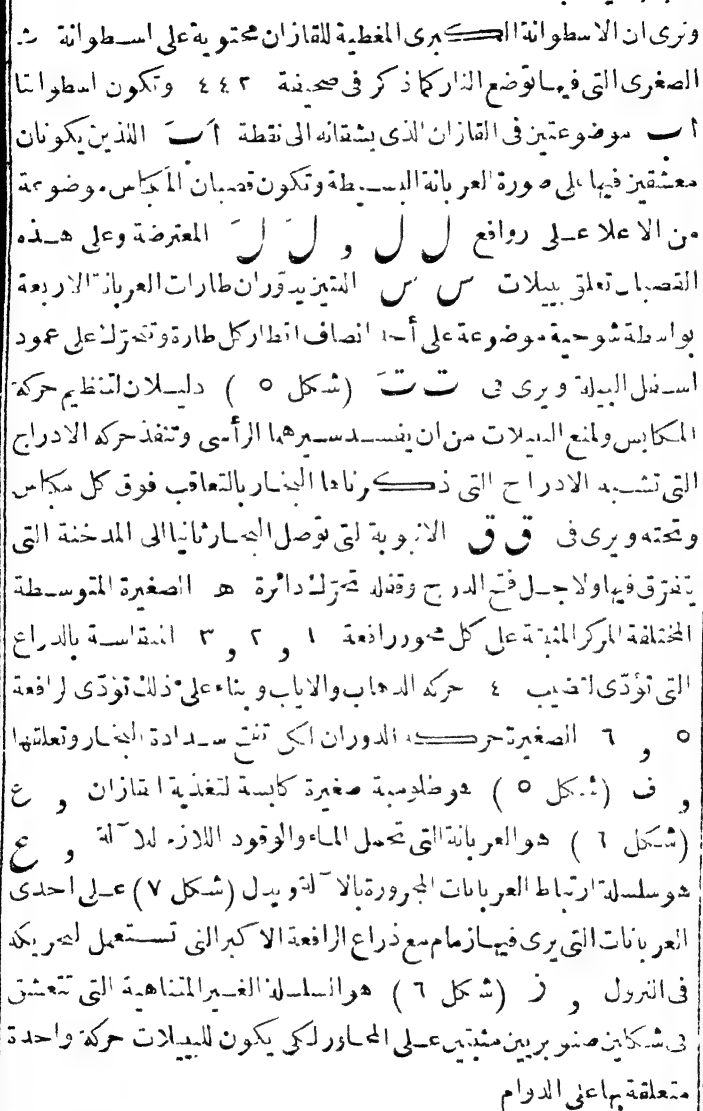 ونرى ان الاسطوانة الكبرى المغطية للقازان محتوية على اسطوانة ث
الصغرى التى فيها توضع النار كما ذكر فى صحيفة ٤٤٢ وتكون اسطوانتا
أ ب موضوعتين فى القازان الذى يشقانه الى نقطة أَ بَ اللذين يكونان
معشقين فيها على صورة العربانة البسيطة وتكون قصبان المكابس موضوعة
من الاعلا على روافع ل ل و لَ لَ المعترضة وعلى هذه
القصبان تعلق بييلات س سَ اللتين يديران طارات العربانة الاربعة
بواسطة شوحية موضوعة على أحد انصاف اقطار كل طارة وتتحرك على عمود
اسفل البيلة ويرى فى ت تَ (شكل ٥) دليلان لتنظيم حركة
المكابس ولمنع البييلات من ان يفسد سيرهما الرأسى وتنفذ حركة الادراج
التى تشبه الادراج التى ذكرناها البخار بالتعاقب فوق كل مكابس
وتحته ويرى فى ق ق الانبوبة التى توصل البخار ثانيا الى المدخنة التى
يتفرق فيها ولاجل فتح الدرج وقفله تحرك دائرة ه الصغيرة المتوسطة
المختلفة المركز المثبتة على كل محور رافعة ١ و ٢ و ٣ المتقاسة بالدراع
التى تؤدى لقضيب ٤ حركة الذهاب والاياب وبناء على ذلك تؤدى لرافعة
٥ و ٦ الصغيرة حركة الدوران لكى تفتح سدادة البخار وتعلقها
و ف (شكل ٥) هو طلومبة صغيرة كابسة لتغذية القازان و ع
(شكل ٦) هو العربانة التى تحمل الماء والوقود اللازم للآلة و ع
هو سلسلة ارتباط العربانات المجرورة بالآلة ويدل (شكل ٧) على احدى
العربانات التى يرى فيها زمام مع ذراع الرافعة الاكبر التى تستعمل لتحريكه
فى النزول و ز (شكل ٦) هو السلسلة الغير المتناهية التى تتعشق
فى شكلين صنوبريين مثبتين على المحاور لكى يكون للبييلات حركة واحدة
متعلقة بها على الدوام